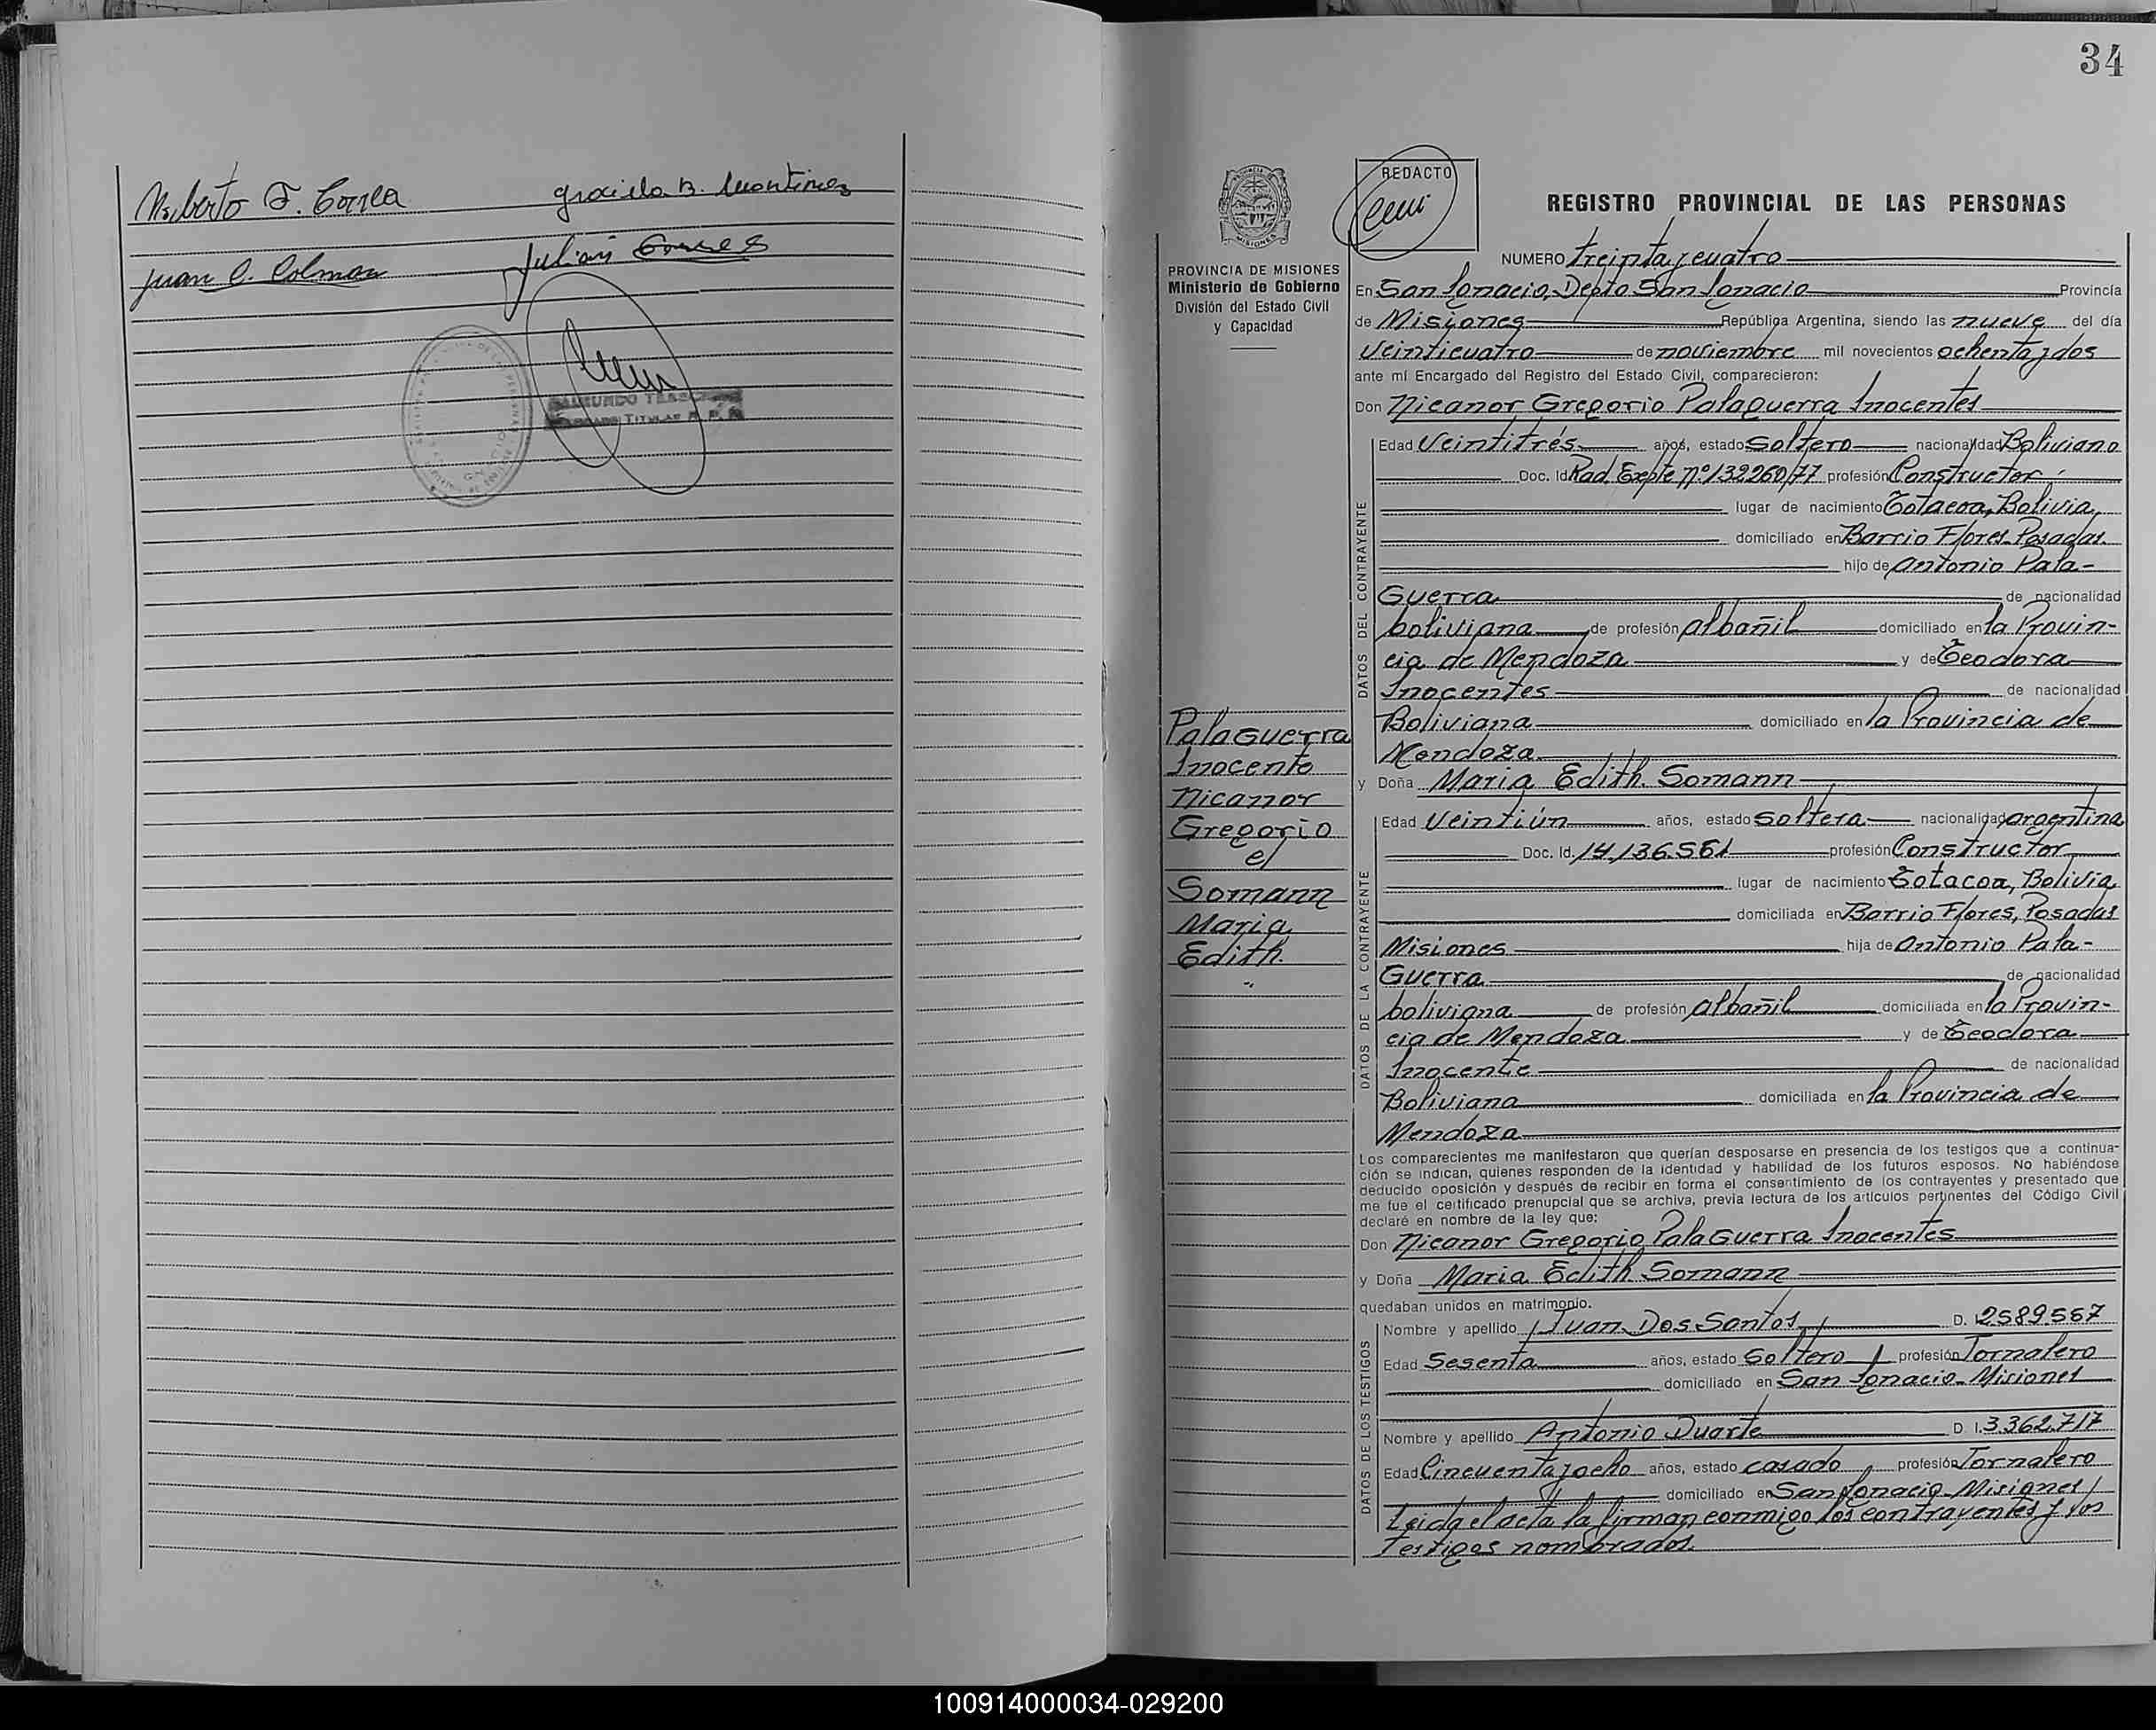 Norberto F. Correa Graciela B. Martinez
Juan C. Colman Julian
34
REDACTO
REGISTRO PROVINCIAL DE LAS PERSONAS
MISIONES
PROVINCIA DE MISIONES
Ministerio de Gobierno
División del Estado Civil
y Capacidad
NUMERO treinta y cuatro
En San Ignacio, Depto San Ignacio Provincia
de Misiones República Argentina, siendo las nueve del día
veinticuatro de noviembre mil novecientos ochenta y dos
ante mí Encargado del Registro del Estado Civil, comparecieron:
Don Nicanor Gregorio Palaguerra Inocentes
DATOS DEL CONTRAYENTE
Edad Veintitrés años, estado soltero nacionalidad Boliviano
Doc. Id. Rad. Expte Nº 132260/77 profesión Constructor
lugar de nacimiento Totacoa, Bolivia,
domiciliado en Barrio Flores-Posadas.
hijo de Antonio Pala-
Guerra de nacionalidad
boliviana de profesión albañil domiciliado en la Provin-
cia de Mendoza y de Teodora
Inocentes de nacionalidad
Boliviana domiciliado en la Provincia de
Mendoza
Palaguerra
Inocente
Nicanor
Gregorio
c/
Somann
Maria
Edith
y Doña Maria Edith Somann
DATOS DE LA CONTRAYENTE
Edad Veintiún años, estado soltera nacionalidad argentina
Doc. Id. 14.136.561 profesión Constructor
lugar de nacimiento Totacoa, Bolivia
domiciliada en Barrio Flores, Posadas
Misiones hija de Antonio Pala-
Guerra de nacionalidad
boliviana de profesión albañil domiciliada en la Provin-
cia de Mendoza y de Teodora
Inocente de nacionalidad
Boliviana domiciliada en la Provincia de
Mendoza
Los comparecientes me manifestaron que querían desposarse en presencia de los testigos que a continua-
ción se indican, quienes responden de la identidad y habilidad de los futuros esposos. No habiéndose
deducido oposición y después de recibir en forma el consentimiento de los contrayentes y presentado que
me fue el certificado prenupcial que se archiva, previa lectura de los artículos pertinentes del Código Civil
declaré en nombre de la ley que:
Don Nicanor Gregorio PalaGuerra Inocentes
y Doña Maria Edith Somann
quedaban unidos en matrimonio.
DATOS DE LOS TESTIGOS
Nombre y apellido Juan Dos Santos D. I. 2589.557
Edad Sesenta años, estado Soltero profesión Jornalero
domiciliado en San Ignacio-Misiones
Nombre y apellido Antonio Duarte D. I. 3.362.717
Edad Cincuenta y ocho años, estado casado profesión Jornalero
domiciliado en San Ignacio-Misiones
Leida el acta la firman conmigo los contrayentes y los
Testigos nombrados.
100914000034-029200